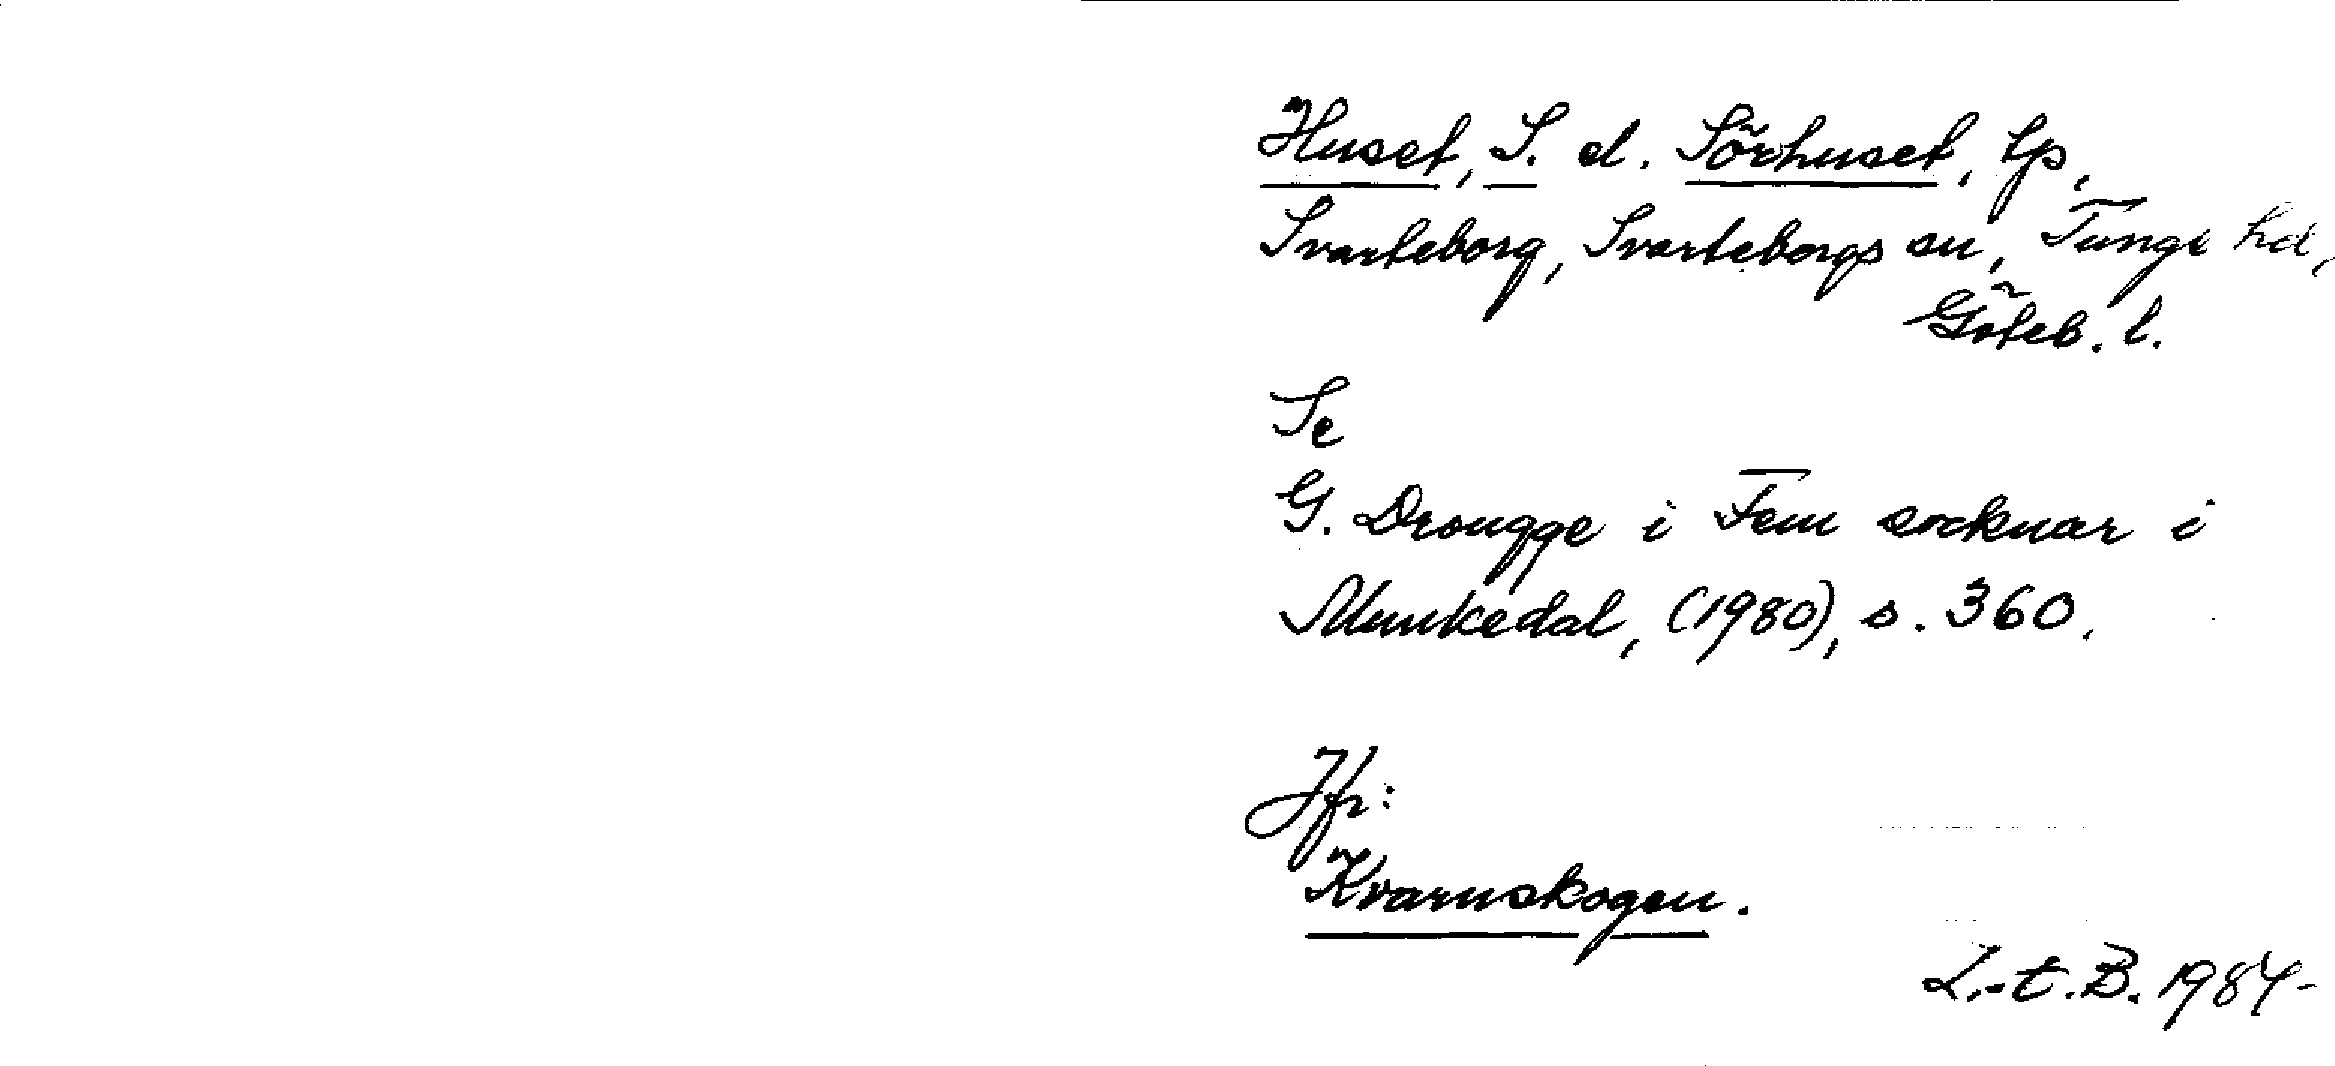 Huset, S. el. Sörhuset, tp,
Svarteborg, Svarteborgs sn, Tunge hd,
Göteb. l.
Se
G. Drougge i Fem socknar i
Munkedal, (1980), s. 360.
Jfr:
Kvarnskogen.
L.-E. B. 1984